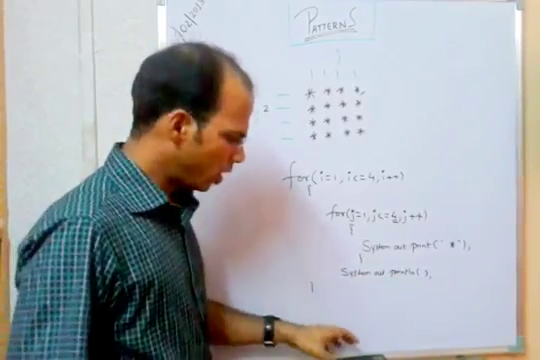 02/2013
PATTERNS
1 1 1 1
* * * *
2
* * * *
* * * *
* * * *
for(i=1, i<=4, i++)
{
for(j=1, j<=4, j++)
{
System out print(" * "),
}
System out println( ),
}